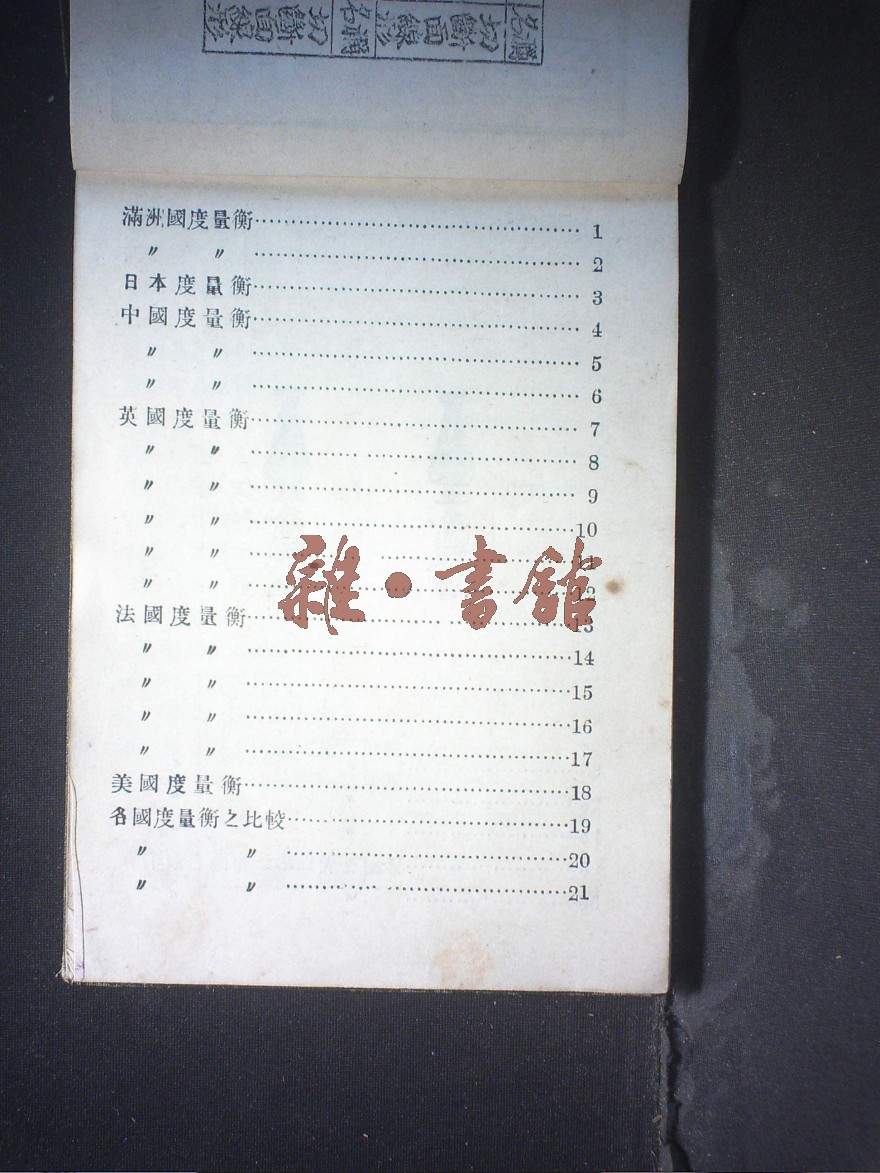 滿洲國度量衡……………………………… 1
〃 〃 ……………………………… 2
日本度量衡……………………………… 3
中國度量衡……………………………… 4
〃 〃 ……………………………… 5
〃 〃 ……………………………… 6
英國度量衡……………………………… 7
〃 〃 ……………………………… 8
〃 〃 ……………………………… 9
〃 〃 ………………………………10
〃 〃 ………………………………11
〃 〃 ………………………………12
法國度量衡………………………………13
〃 〃 ………………………………14
〃 〃 ………………………………15
〃 〃 ………………………………16
〃 〃 ………………………………17
美國度量衡………………………………18
各國度量衡之比較…………………………19
〃 〃 …………………………20
〃 〃 …………………………21
雜·書館